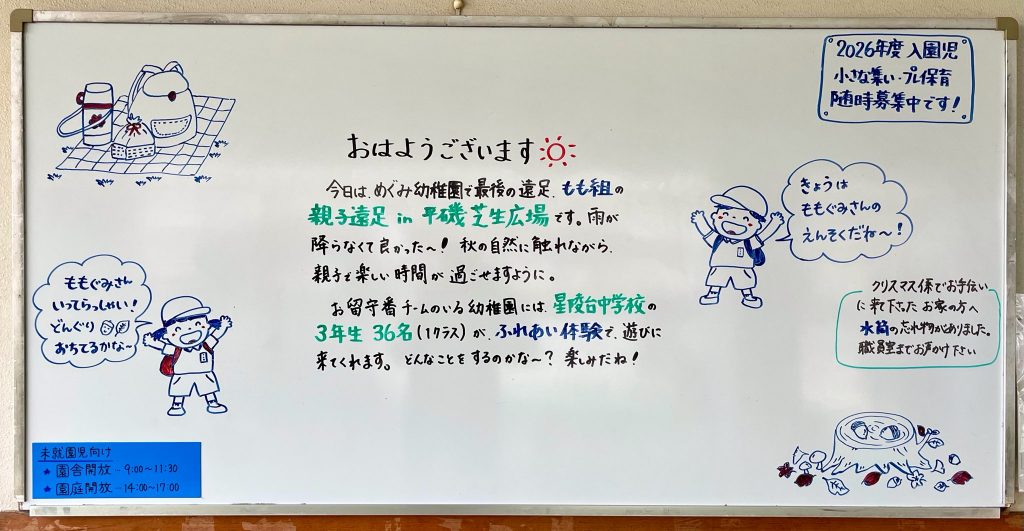 おはようございます
今日は、めぐみ幼稚園で最後の遠足、もも組の
親子遠足 in 平磯芝生広場です。雨が
降らなくて良かった〜！秋の自然に触れながら、
親子で楽しい時間が過ごせますように。
お留守番チームのいる幼稚園には、星陵台中学校の
3年生 36名(1クラス)が、ふれあい体験で、遊びに
来てくれます。どんなことをするのかな〜？楽しみだね！
2026年度 入園児
小さな集い・プレ保育
随時募集中です！
きょうは
ももぐみさんの
えんそくだね〜！
ももぐみさん
いってらっしゃい！
どんぐり
おちてるかな〜
クリスマス係でお手伝い
に来て下さった お家の方へ
水筒の忘れ物がありました。
職員室までお声かけ下さい
未就園児向け
★ 園舎開放 … 9:00〜11:30
★ 園庭開放 … 14:00〜17:00